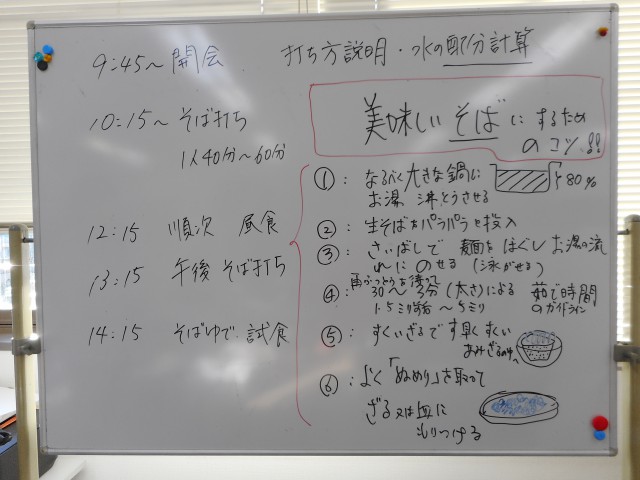 9:45～ 開会
打ち方説明・水の配分計算
10:15～ そば打ち
1人40分～60分
12:15 順次 昼食
13:15 午後 そば打ち
14:15 そばゆで 試食
美味しい そば に するため
のコツ!!
①: なるべく大きな鍋に
お湯 沸とうさせる
80%
②: 生そばをパラパラと投入
③: さいばしで 麺を ほぐし お湯の流
れに のせる (泳がせる)
再ふっとうを待って
④: 30～ 3分 (太さ)による 茹で時間
のガイドライン
1.5ミリ ～5ミリ
⑤: すくいざるで す早く すくい
あみざる
⑥: よく「ぬめり」を取って
ざる 又は皿に
もりつける